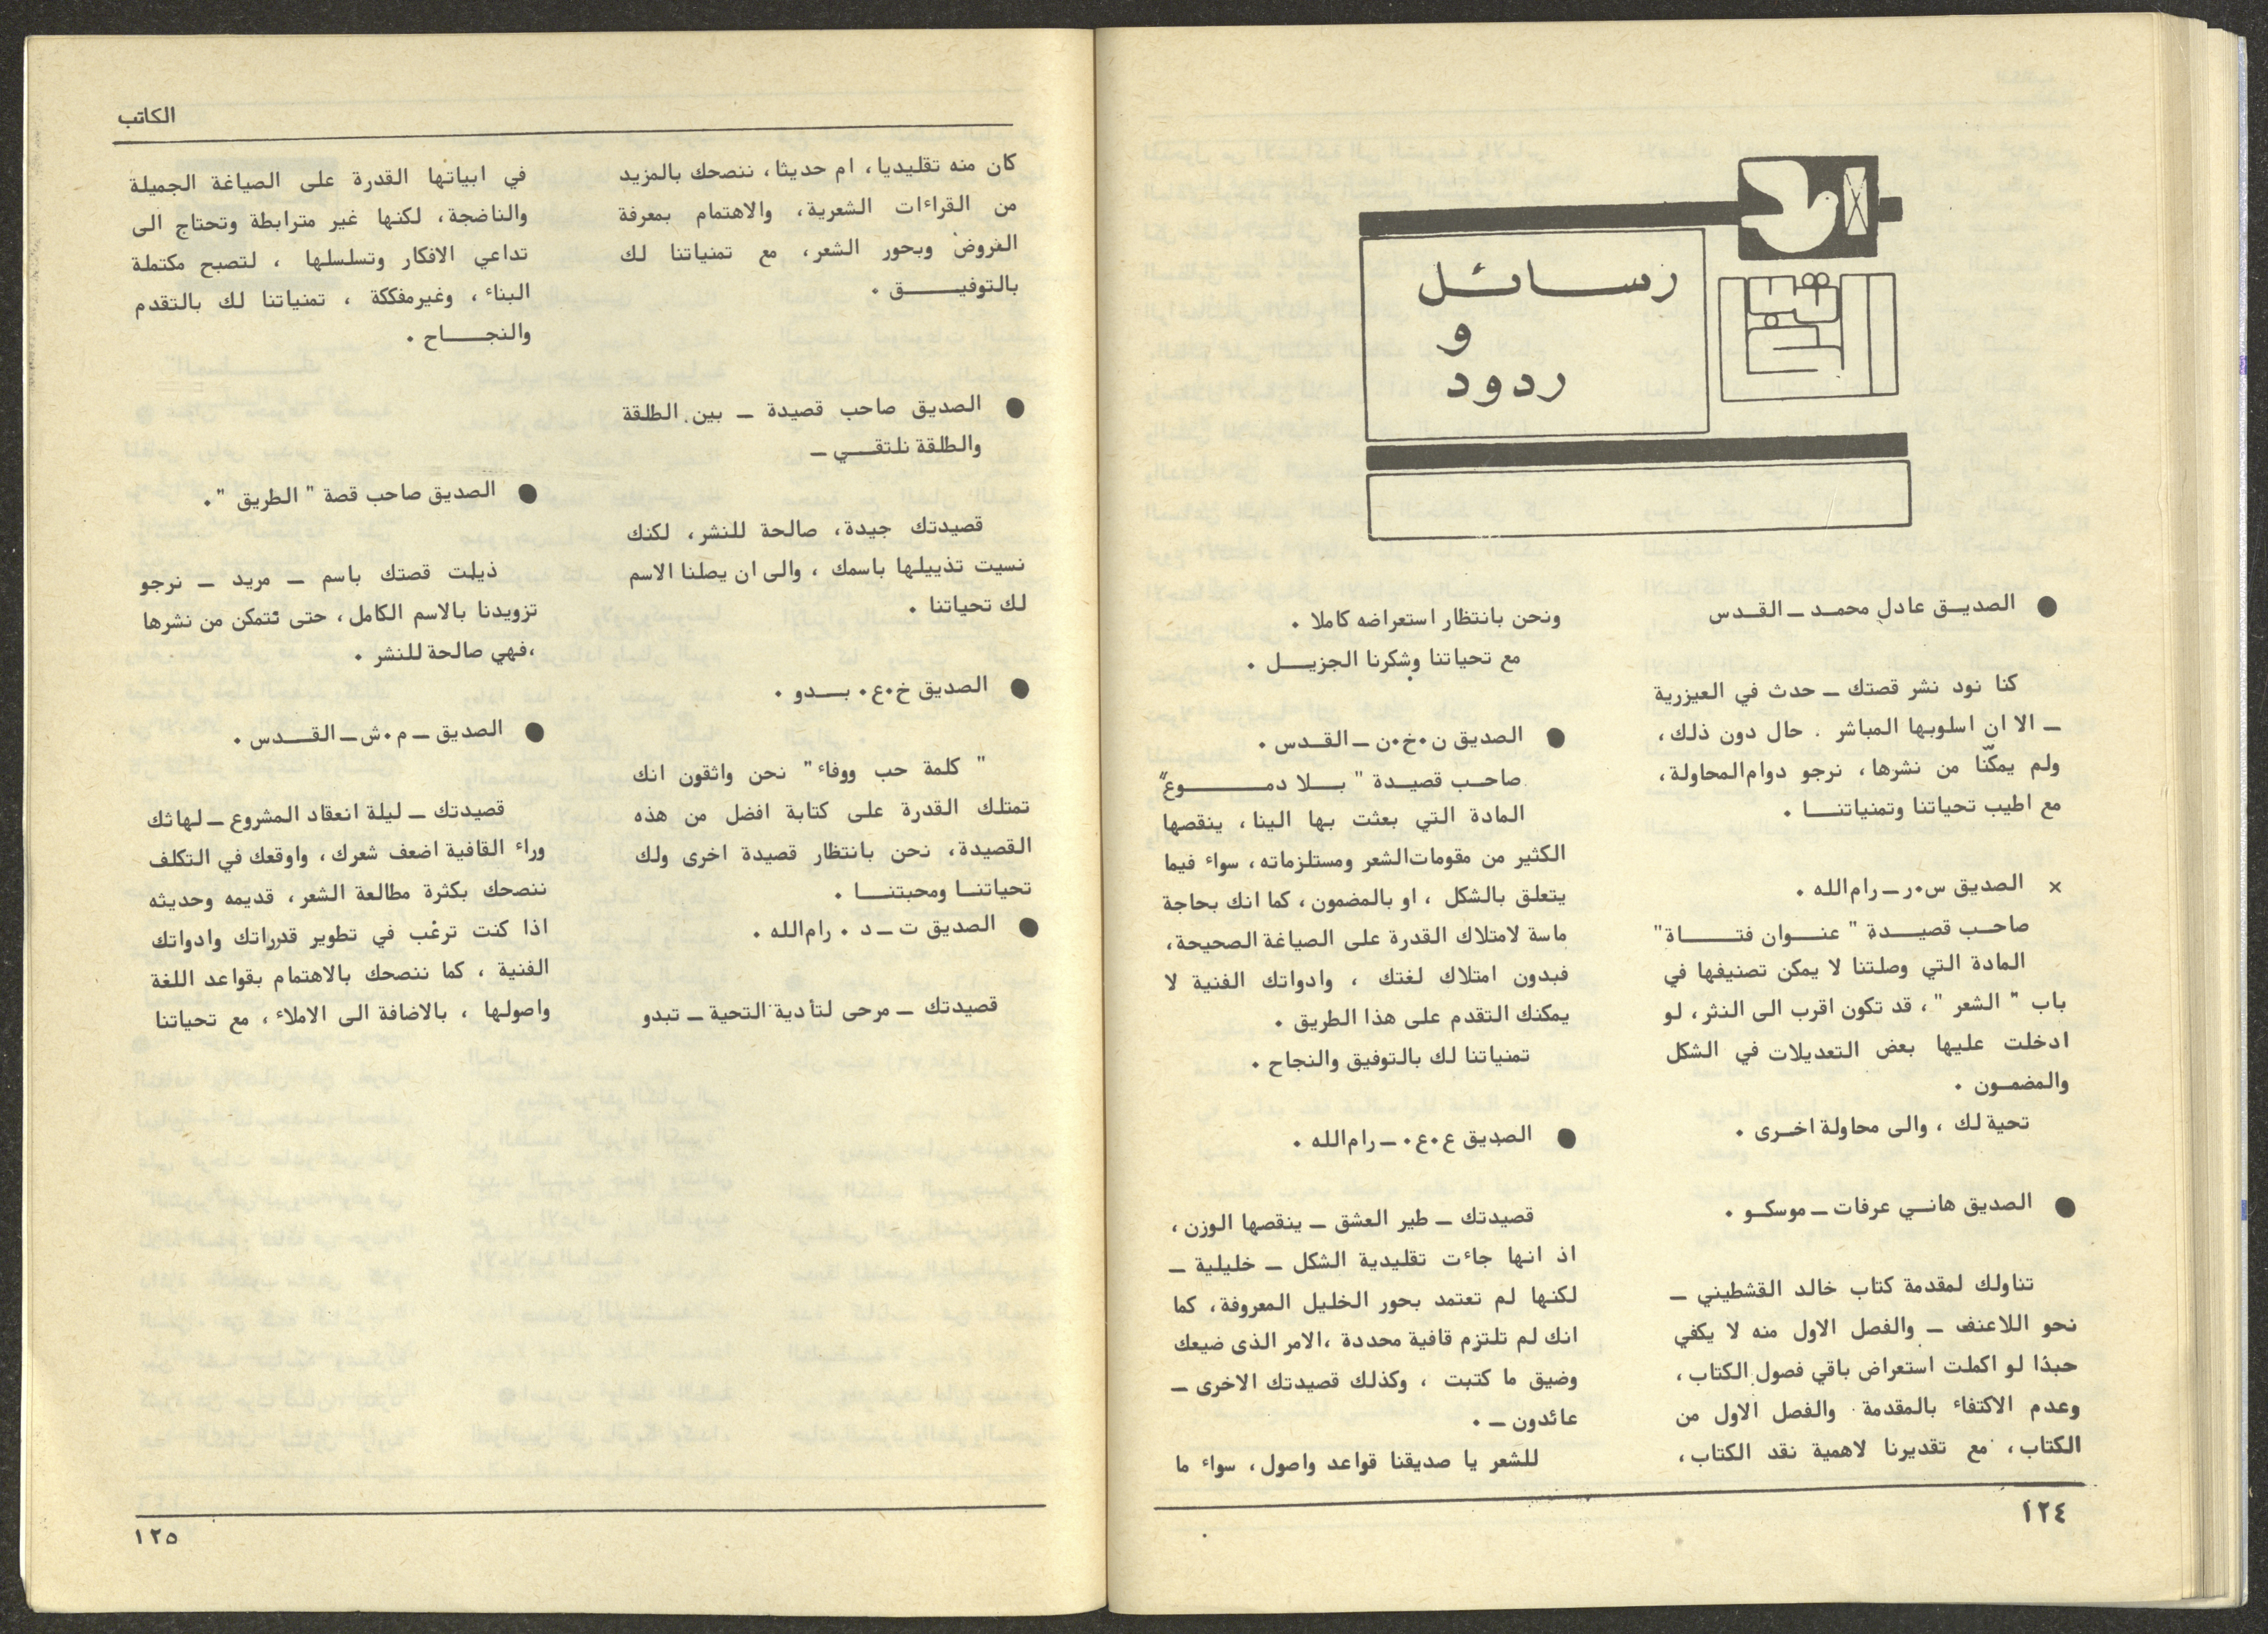 رسائل
و
ردود
● الصديق عادل محمد ـ القدس
كنا نود نشر قصتك ـ حدث في العيزرية
ـ الا ان اسلوبها المباشر . حال دون ذلك،
ولم يمكنّا من نشرها، نرجو دوام المحاولة،
مع اطيب تحياتنا وتمنياتنا .
× الصديق س.ر ـ رام الله .
صاحب قصيدة " عنوان فتاة"
المادة التي وصلتنا لا يمكن تصنيفها في
باب " الشعر "، قد تكون اقرب الى النثر، لو
ادخلت عليها بعض التعديلات في الشكل
والمضمون .
تحية لك ، والى محاولة اخرى .
● الصديق هاني عرفات ـ موسكو .
تناولك لمقدمة كتاب خالد القشطيني ـ
نحو اللاعنف ـ والفصل الاول منه لا يكفي
حبذا لو اكملت استعراض باقي فصول الكتاب ،
وعدم الاكتفاء بالمقدمة والفصل الاول من
الكتاب، مع تقديرنا لاهمية نقد الكتاب،
ونحن بانتظار استعراضه كاملا .
مع تحياتنا وشكرنا الجزيل .
● الصديق ن.خ.ن ـ القدس .
صاحب قصيدة " بلا دموع"
المادة التي بعثت بها الينا، ينقصها
الكثير من مقومات الشعر ومستلزماته، سواء فيما
يتعلق بالشكل ، او بالمضمون، كما انك بحاجة
ماسة لامتلاك القدرة على الصياغة الصحيحة،
فبدون امتلاك لغتك ، وادواتك الفنية لا
يمكنك التقدم على هذا الطريق .
تمنياتنا لك بالتوفيق والنجاح .
● الصديق ع.ع. ـ رام الله .
قصيدتك ـ طير العشق ـ ينقصها الوزن ،
اذ انها جاءت تقليدية الشكل ـ خليلية ـ
لكنها لم تعتمد بحور الخليل المعروفة، كما
انك لم تلتزم قافية محددة ،الامر الذى ضيعك
وضيق ما كتبت ، وكذلك قصيدتك الاخرى ـ
عائدون ـ .
للشعر يا صديقنا قواعد واصول، سواء ما
١٢٤
الكاتب
كان منه تقليديا، ام حديثا، ننصحك بالمزيد
من القراءات الشعرية، والاهتمام بمعرفة
الفروض وبحور الشعر، مع تمنياتنا لك
بالتوفيق .
● الصديق صاحب قصيدة ـ بين الطلقة
والطلقة نلتقي ـ
قصيدتك جيدة، صالحة للنشر، لكنك
نسيت تذييلها باسمك ، والى ان يصلنا الاسم
لك تحياتنا .
● الصديق خ.ع. بدو .
" كلمة حب ووفاء" نحن واثقون انك
تمتلك القدرة على كتابة افضل من هذه
القصيدة، نحن بانتظار قصيدة اخرى ولك
تحياتنا ومحبتنا .
● الصديق ت ـ د . رام الله .
قصيدتك ـ مرحى لتأدية التحية ـ تبدو
في ابياتها القدرة على الصياغة الجميلة
والناضجة، لكنها غير مترابطة وتحتاج الى
تداعي الافكار وتسلسلها ، لتصبح مكتملة
البناء ، وغير مفككة ، تمنياتنا لك بالتقدم
والنجاح .
● الصديق صاحب قصة " الطريق ".
ذيلت قصتك باسم ـ مريد ـ نرجو
تزويدنا بالاسم الكامل، حتى نتمكن من نشرها
،فهي صالحة للنشر .
● الصديق ـ م.ش ـ القدس .
قصيدتك ـ ليلة انعقاد المشروع ـ لهاثك
وراء القافية اضعف شعرك، واوقعك في التكلف
ننصحك بكثرة مطالعة الشعر، قديمه وحديثه
اذا كنت ترغب في تطوير قدرراتك وادواتك
الفنية ، كما ننصحك بالاهتمام بقواعد اللغة
واصولها ، بالاضافة الى الاملاء، مع تحياتنا
١٢٥